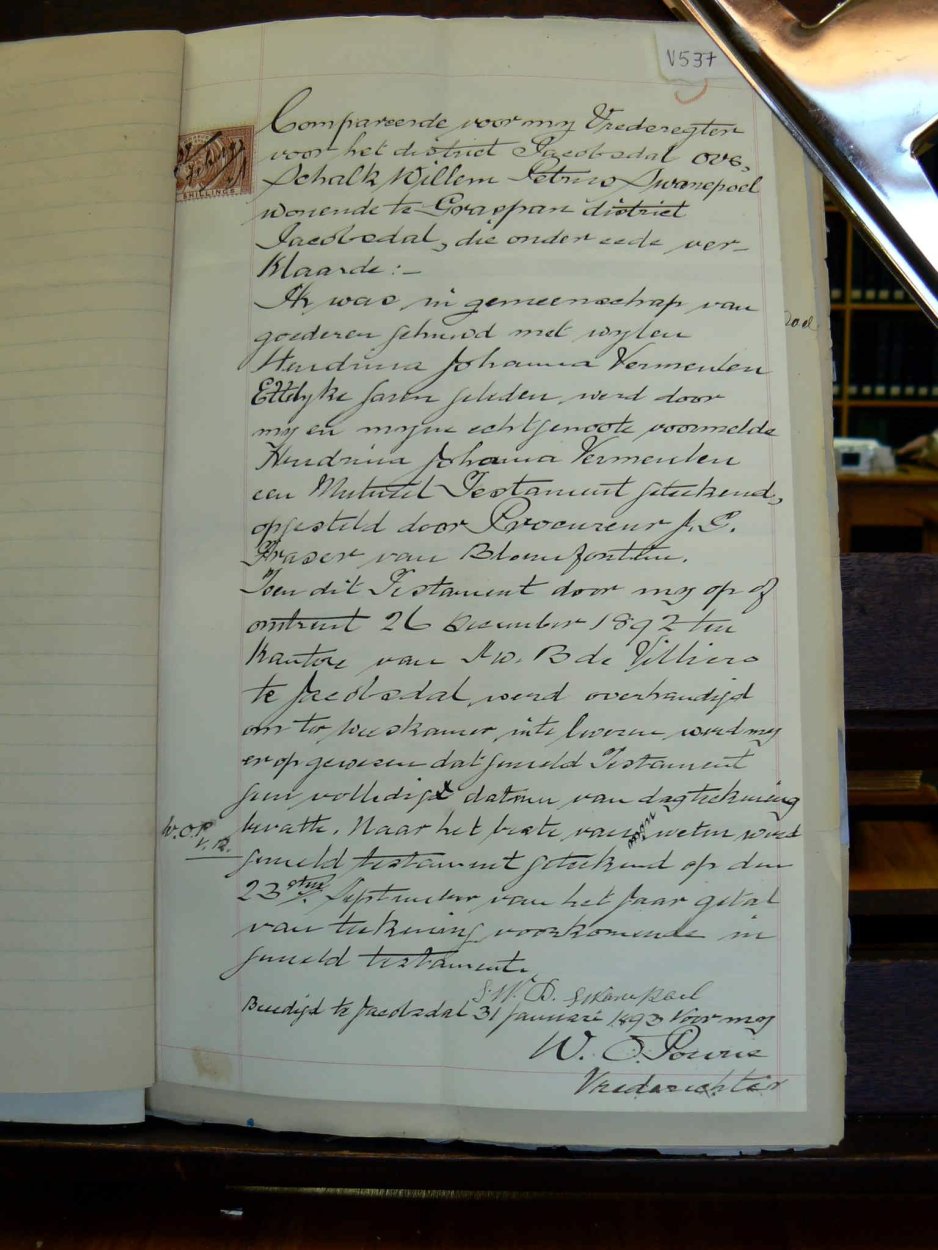 V537
Compareerde voor my Vrederegter
voor het district Jacobsdal OVS,
Schalk Willem Petrus Swanepoel
wonende te Graspan district
Jacobsdal, die onder eede ver-
klaarde :-
Ik was in gemeenschap van
goederen gehuwd met wylen
Hendrina Johanna Vermeulen
Ettelyke jaren geleden, werd door
my en myne echtgenoote voormelde
Hendrina Johanna Vermeulen
een Mutueel Testament geteekend,
opgesteld door Procureur J. G.
Fraser van Bloemfontein.
Toen dit Testament door my op of
omtrent 26 December 1892 ten
kantore van B de Villiers
te Jacobsdal, werd overhandigd
om ter weeskamer in te leveren werd my
er op gewezen dat gemeld Testament
geen volledige datum van dagteekening
bevatte. Naar het beste van myn weten werd
W.O.P.
V.R.
gemeld testament geteekend op den
23sten September van het jaar getal
van teekening voorkomende in
gemeld testament.
S. W. P. Swanepoel
Beedigd te Jacobsdal 31 Januari 1893 Voor my
W. O.
Vrederichter
SHILLINGS